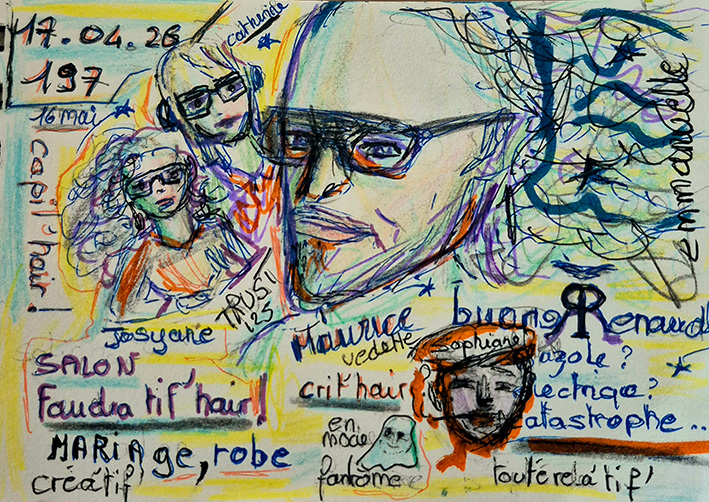 17.04.26
197
Catherine
16 mai
capil'hair!
emmanuelle
Josyane
TRUST
125
Maurice
vedette
Renaud
Sophiane
SALON
Faudra tif'hair!
crit'hair
MARiage, robe
créatif
en mode
fantôme
azole?
électrique?
atastrophe..
toutérelátif'